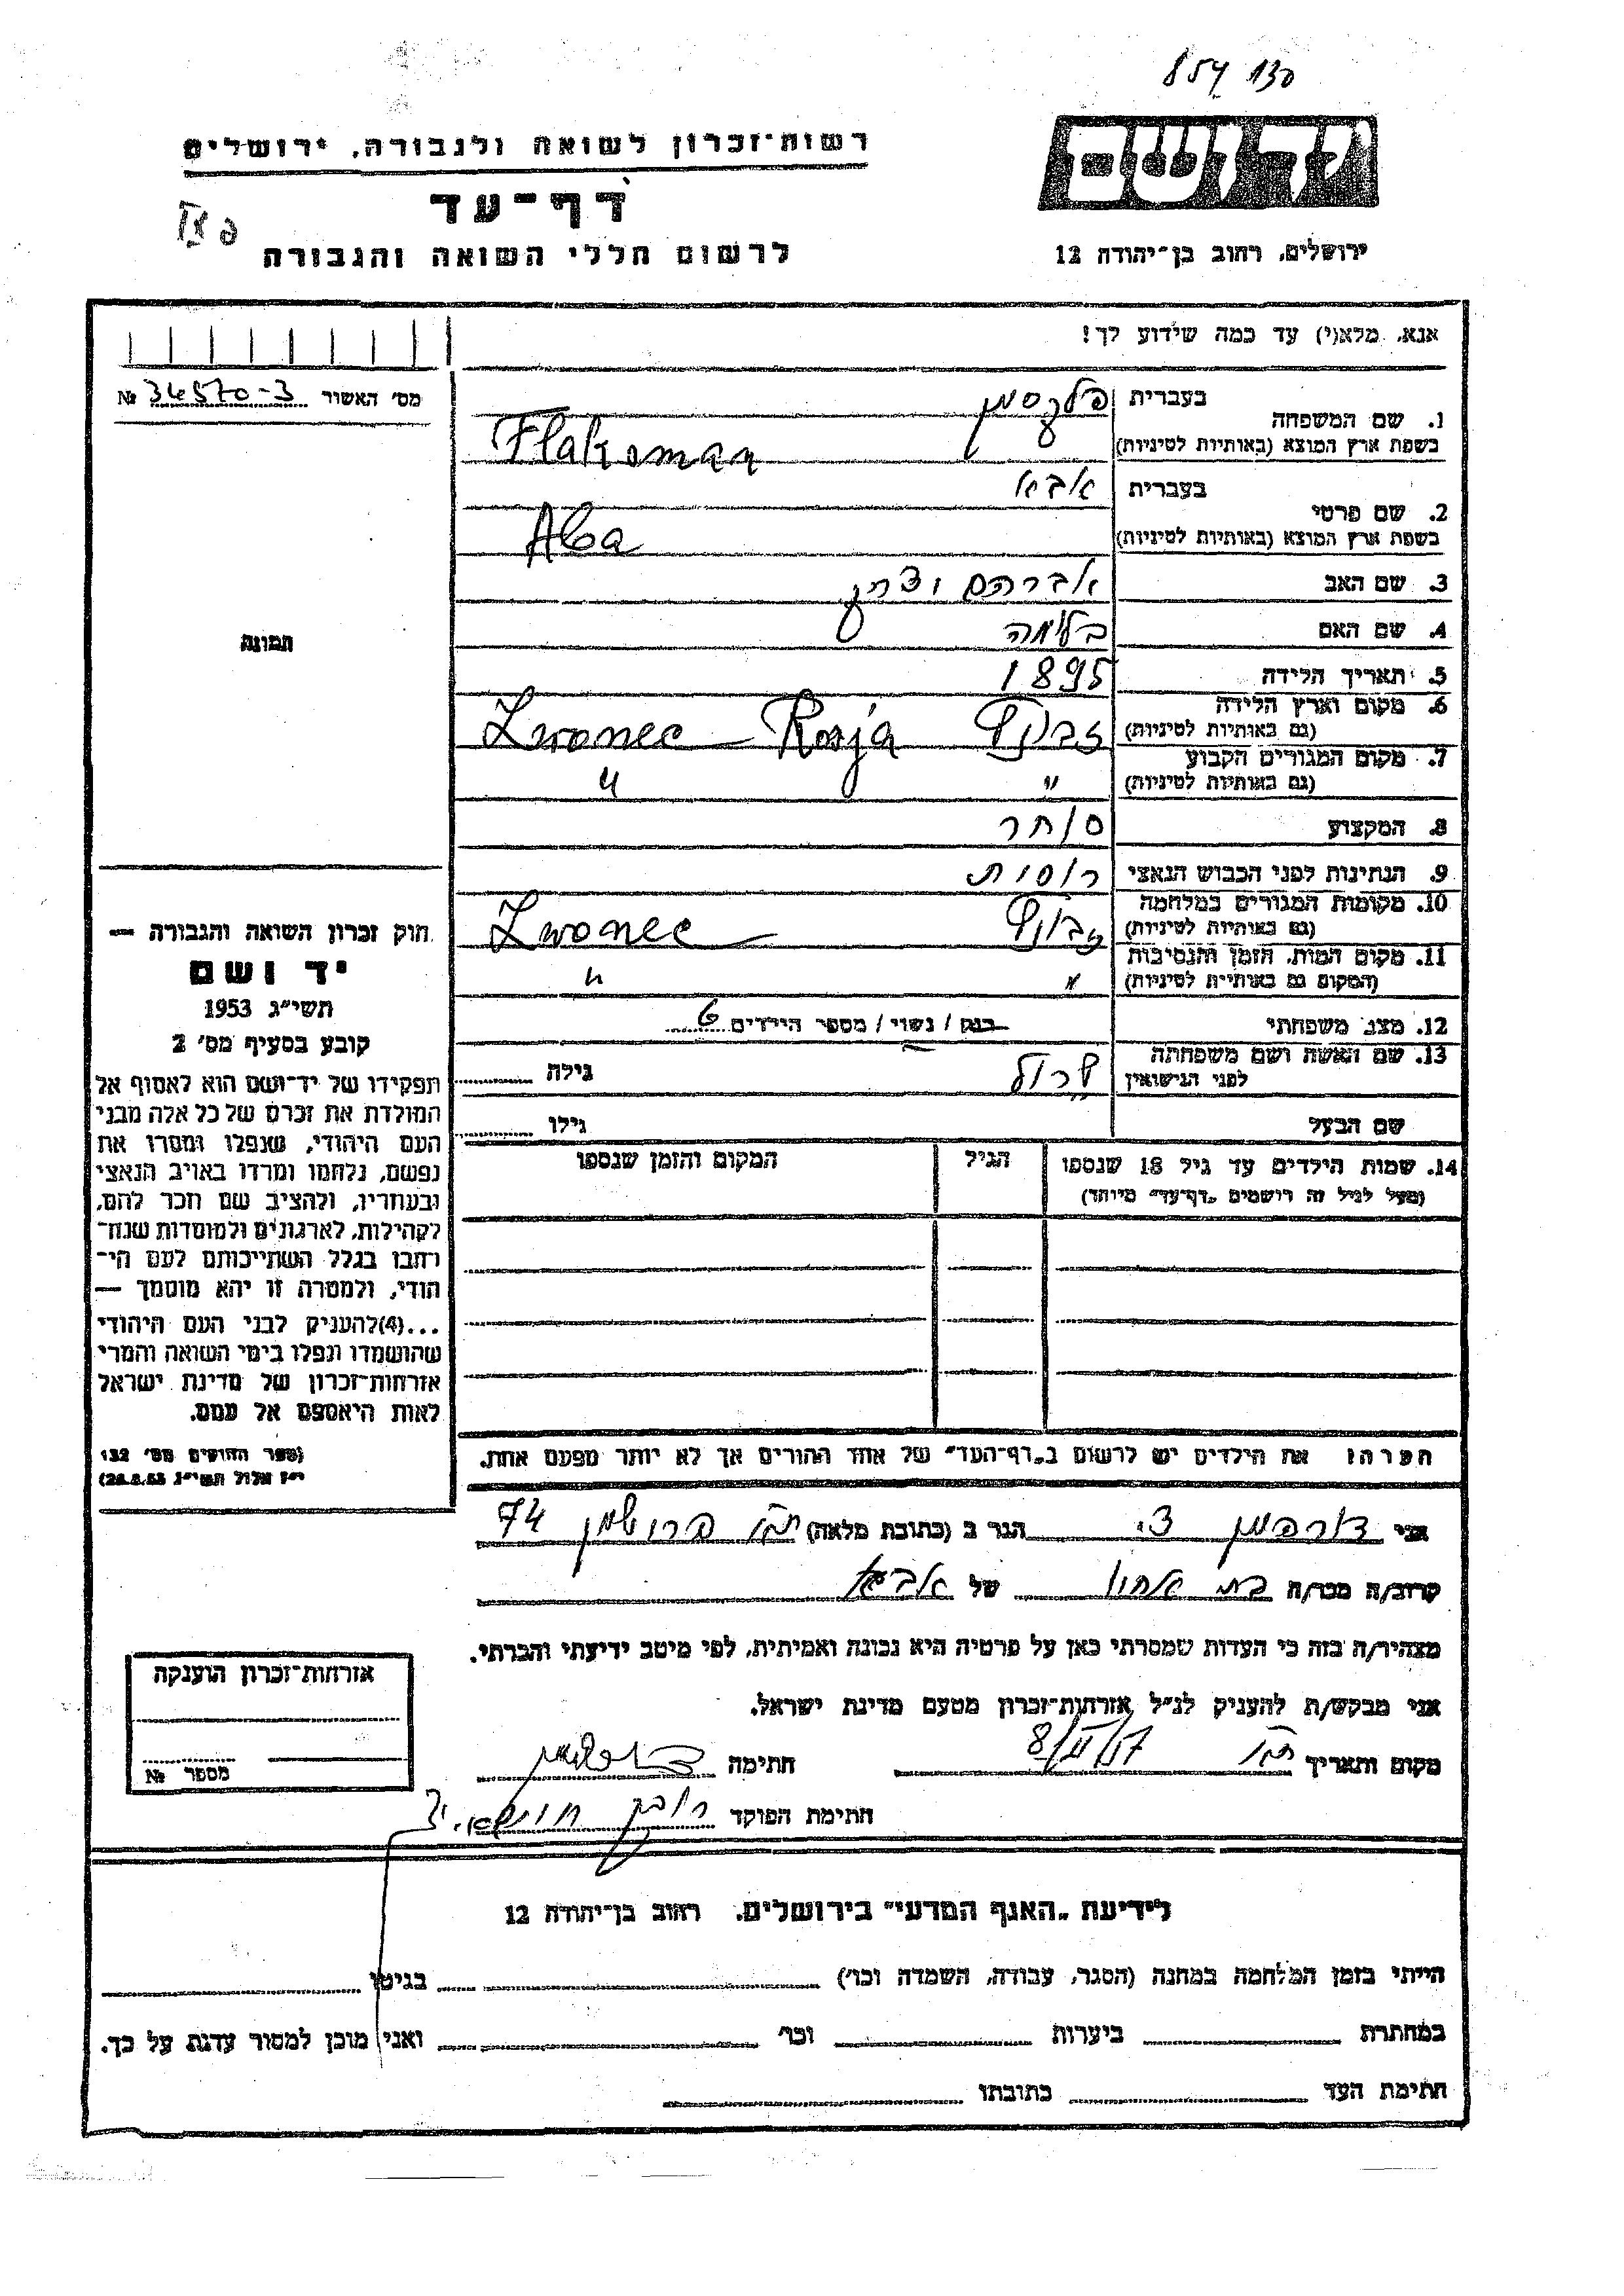 854 130
יד ושם
רשות־זכרון לשואה ולגבורה, ירושלים
דף־עד
לרשום חללי השואה והגבורה
ירושלים, רחוב בן־יהודה 12
אנא, מלא(י) עד כמה שידוע לך!
מס׳ האשור № 34570-3
1. שם המשפחה
בעברית פלקסמן
בשפת ארץ המוצא (באותיות לטיניות) Flaksman
2. שם פרטי
בעברית אבא
בשפת ארץ המוצא (באותיות לטיניות) Aba
3. שם האב אברהם
4. שם האם בלימה
5. תאריך הלידה 1895
6. מקום וארץ הלידה
(גם באותיות לטיניות) Zwonec – Rosja
7. מקום המגורים הקבוע
(גם באותיות לטיניות) " "
8. המקצוע סוחר
9. הנתינות לפני הכבוש הנאצי רוסית
10. מקומות המגורים במלחמה
(גם באותיות לטיניות) Zwonec
11. מקום המות, הזמן והנסיבות
(המקום גם באותיות לטיניות) " "
12. מצב משפחתי רווק / נשוי / מספר הילדים 6
13. שם האשה ושם משפחתה
לפני הנישואין
גילה
שם הבעל
גילו
14. שמות הילדים עד גיל 18 שנספו
(מעל לגיל זה רושמים „דף־עד״ מיוחד)
הגיל
המקום והזמן שנספו
הערה: את הילדים יש לרשום ב„דף־העד״ של אחד ההורים אך לא יותר מפעם אחת.
תמונה
חוק זכרון השואה והגבורה —
יד ושם
תשי״ג 1953
קובע בסעיף מס׳ 2
תפקידו של יד־ושם הוא לאסוף אל
המולדת את זכרם של כל אלה מבני
העם היהודי, שנפלו ומסרו את
נפשם, נלחמו ומרדו באויב הנאצי
ובעוזריו, ולהציב שם וזכר להם,
לקהילות, לארגונים ולמוסדות שנח־
רבו בגלל השתייכותם לעם הי־
הודי, ולמטרה זו יהא מוסמך —
...(4) להעניק לבני העם היהודי
שהושמדו ונפלו בימי השואה והמרי
אזרחות־זכרון של מדינת ישראל
לאות היאספם אל עמם.
(ספר החוקים מס׳ 132,
י״ז אלול תשי״ג 28.8.53)
אני דורפמן צ. הגר ב (כתובת מלאה) ת״א 74
קרוב/ה מכר/ה בת אחיו של אבא
מצהיר/ה בזה כי העדות שמסרתי כאן על פרטיה היא נכונה ואמיתית, לפי מיטב ידיעתי והכרתי.
אני מבקש/ת להעניק לנ״ל אזרחות־זכרון מטעם מדינת ישראל.
מקום ותאריך ת״א
חתימה
חתימת הפוקד
אזרחות־זכרון הוענקה
מספר №
לידיעת „האגף המדעי״ בירושלים, רחוב בן־יהודה 12
הייתי בזמן המלחמה במחנה (הסגר, עבודה, השמדה וכו׳) בגיטו
במחתרת ביערות וכו׳ ואני מוכן למסור עדות על כך.
חתימת העד כתובתו